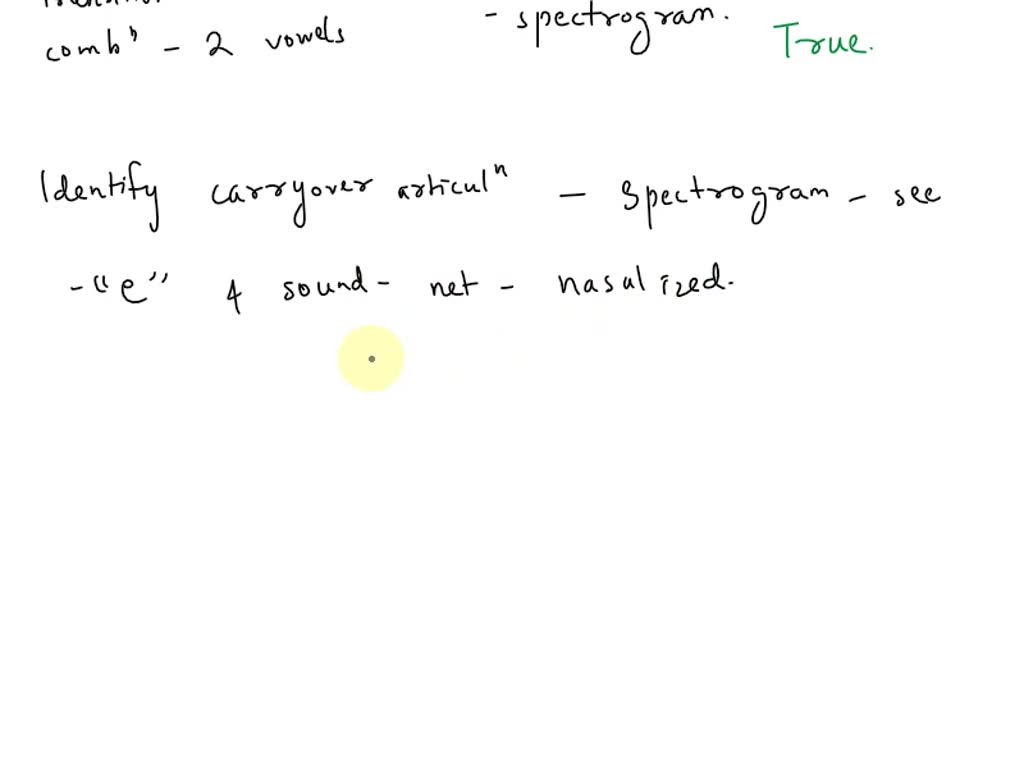 - spectrogram.
combⁿ - 2 vowels
True.
Identify carryover articulⁿ - Spectrogram - see
- "e" 4 sound - net - nasalized.